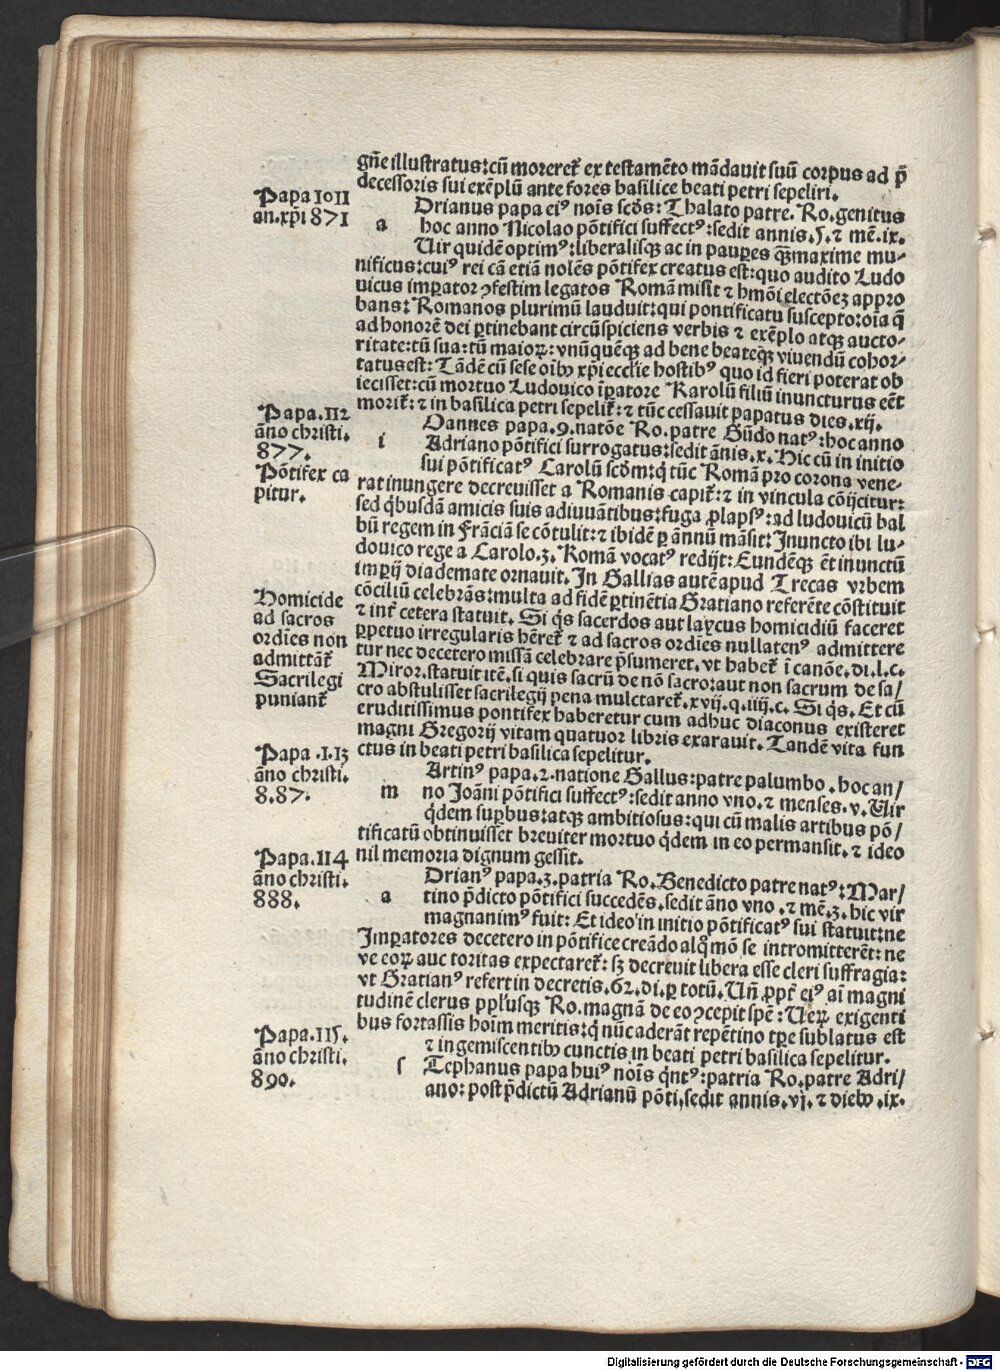 gn̄e illustratus: cū moreret᷑ ex testamēto mādauit suū corpus ad p̄
decessoris sui exēplū ante fores basilice beati petri sepeliri.
Papa 1011
an. xpi 871
a
Drianus papa eiꝰ noīs scd̄s: Thalato patre. Ro. genitus
hoc anno Nicolao pōtifici suffectꝰ: sedit annis. 5. ⁊ mē. ix.
Uir quidē optimꝰ: liberalisqꝫ ac in paupes qꝫmaxime mu-
nificus: cuiꝰ rei cā etiā nolēs pōtifex creatus est: quo audito Ludo
uicus impator ꝯfestim legatos Romā misit ⁊ hm̄oi electōeꝫ appro
bans: Romanos plurimū lauduit: qui pontificatu suscepto: oīa q̄
ad honorē dei ꝑtinebant circūspiciens verbis ⁊ exēplo atqꝫ aucto-
ritate: tū sua: tū maioꝝ: vnūquēqꝫ ad bene beateqꝫ viuendū cohor-
tatus est: Tādē cū sese oībꝰ xpi ecclīe hostibꝰ quo id fieri poterat ob
iecisset: cū mortuo Ludouico īpatore Karolū filiū inuncturus eēt
morit᷑: ⁊ in basilica petri sepelit᷑: ⁊ tūc cessauit papatus dies. xij.
Papa. 112
āno christi.
877.
i
Oannes papa. 9. natōe Ro. patre Gūdo natꝰ: hoc anno
Adriano pōtifici surrogatus: sedit ānis. x. Hic cū in initio
sui pōtificatꝰ Carolū scd̄m: q̇ tūc Romā pro corona vene-
Pōtifex ca
pitur.
rat inungere decreuisset a Romanis capit᷑: ⁊ in vincula cōijcitur:
sed q̇busdā amicis suis adiuuātibus: fuga ꝓlapsꝰ: ad ludouicū bal
bū regem in frāciā se cōtulit: ⁊ ibidē ꝑ ānnū māsit: Inuncto ibi lu-
douico rege a Carolo. 3. Romā vocatꝰ redijt: Eundēqꝫ ēt inunctū
impij diademate ornauit. In Gallias autē apud Trecas vrbem
cōciliū celebrās: multa ad fidē ꝑtinētia Gratiano referēte cōstituit
Homicide
ad sacros
ordīes non
admittāt᷑
⁊ int᷑ cetera statuit. Si q̇s sacerdos aut laycus homicidiū faceret
ꝑpetuo irregularis hēret᷑ ⁊ ad sacros ordīes nullatenꝰ admittere
tur nec decetero missā celebrare p̄sumeret. vt habet᷑ ī canōe. di. l. c.
Sacrilegi
puniant᷑
Miror. statuit itē. si quis sacrū de nō sacro: aut non sacrum de sa/
cro abstulisset sacrilegij pena mulctaret᷑. xvij. q. iiij. c. Si q̇s. Et cū
eruditissimus pontifex haberetur cum adhuc diaconus existeret
magni Gregorij vitam quatuor libris exarauit. Tandē vita fun
ctus in beati petri basilica sepelitur.
Papa .1.13
āno christi.
8.87.
m
Artinꝰ papa. 2. natione Gallus: patre palumbo. hoc an/
no Joāni pōtifici suffectꝰ: sedit anno vno. ⁊ menses. v. Uir
q̇dem supbus: atqꝫ ambitiosus: qui cū malis artibus pō/
tificatū obtinuisset breuiter mortuo q̇dem in eo permansit. ⁊ ideo
nil memoria dignum gessit.
Papa. 114
āno christi.
888.
a
Drianꝰ papa. 3. patria Ro. Benedicto patre natꝰ: Mar-
tino p̄dicto pōtifici succedēs. sedit āno vno. ⁊ mē. 3. hic vir
magnanimꝰ fuit: Et ideo in initio pōtificatꝰ sui statuit: ne
Impatores decetero in pōtifice creādo alq̇ mō se intromitterēt: ne
ve eoꝝ auctoritas expectaret᷑: sꝫ decreuit libera esse cleri suffragia:
vt Gratianꝰ refert in decretis. 62. di. ꝑ totū. Un̄ ꝓpt᷑ eiꝰ aī magni
tudinē clerus ppl'usqꝫ Ro. magnā de eo ꝯcepit spē: Ueꝝ exigenti
bus fortassis hoīm meritis: q̇ nūc aderāt repētino tpe sublatus est
⁊ ingemiscentibꝰ cunctis in beati petri basilica sepelitur.
Papa. 115.
āno christi.
890.
s
Tephanus papa huiꝰ noīs q̇ntꝰ: patria Ro. patre Adri/
ano: post p̄dictū Adrianū pōti. sedit annis. vj. ⁊ diebꝰ. ix.
Digitalisierung gefördert durch die Deutsche Forschungsgemeinschaft - DFG